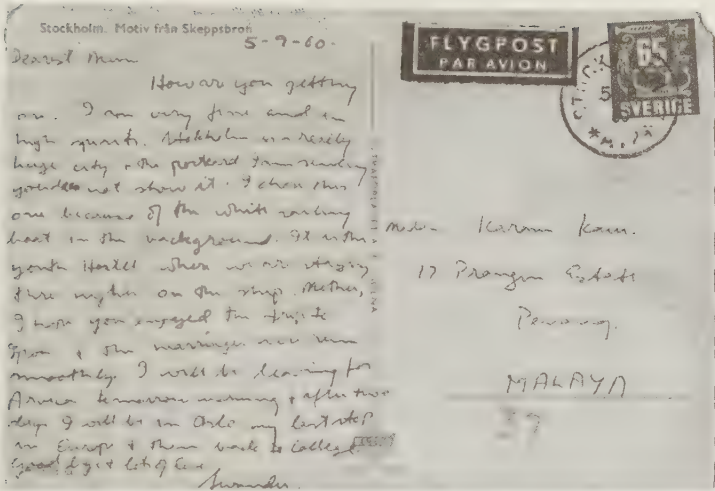 Stockholm. Motiv från Skeppsbron
5-9-60.
Dearest Mum
How are you getting
on. I am very fine and in
high spirits. Stockholm is a really
huge city & the postcard I am sending
you does not show it. I chose this
one because of the white sailing
boat in the background. It is the
youth Hostel where we are staying
three nights on the ship. Mother,
I hope you enjoyed the trip to
& the marriage
smoothly. I will be leaving for
tomorrow morning & after two
days I will be in Oslo my last stop
in Europe & then back to college.
Good bye & lots of love
FLYGPOST
PAR AVION
65
SVERIGE
Madam Karam Kaur.
17 Prangin Estate
Penang.
MALAYA
39